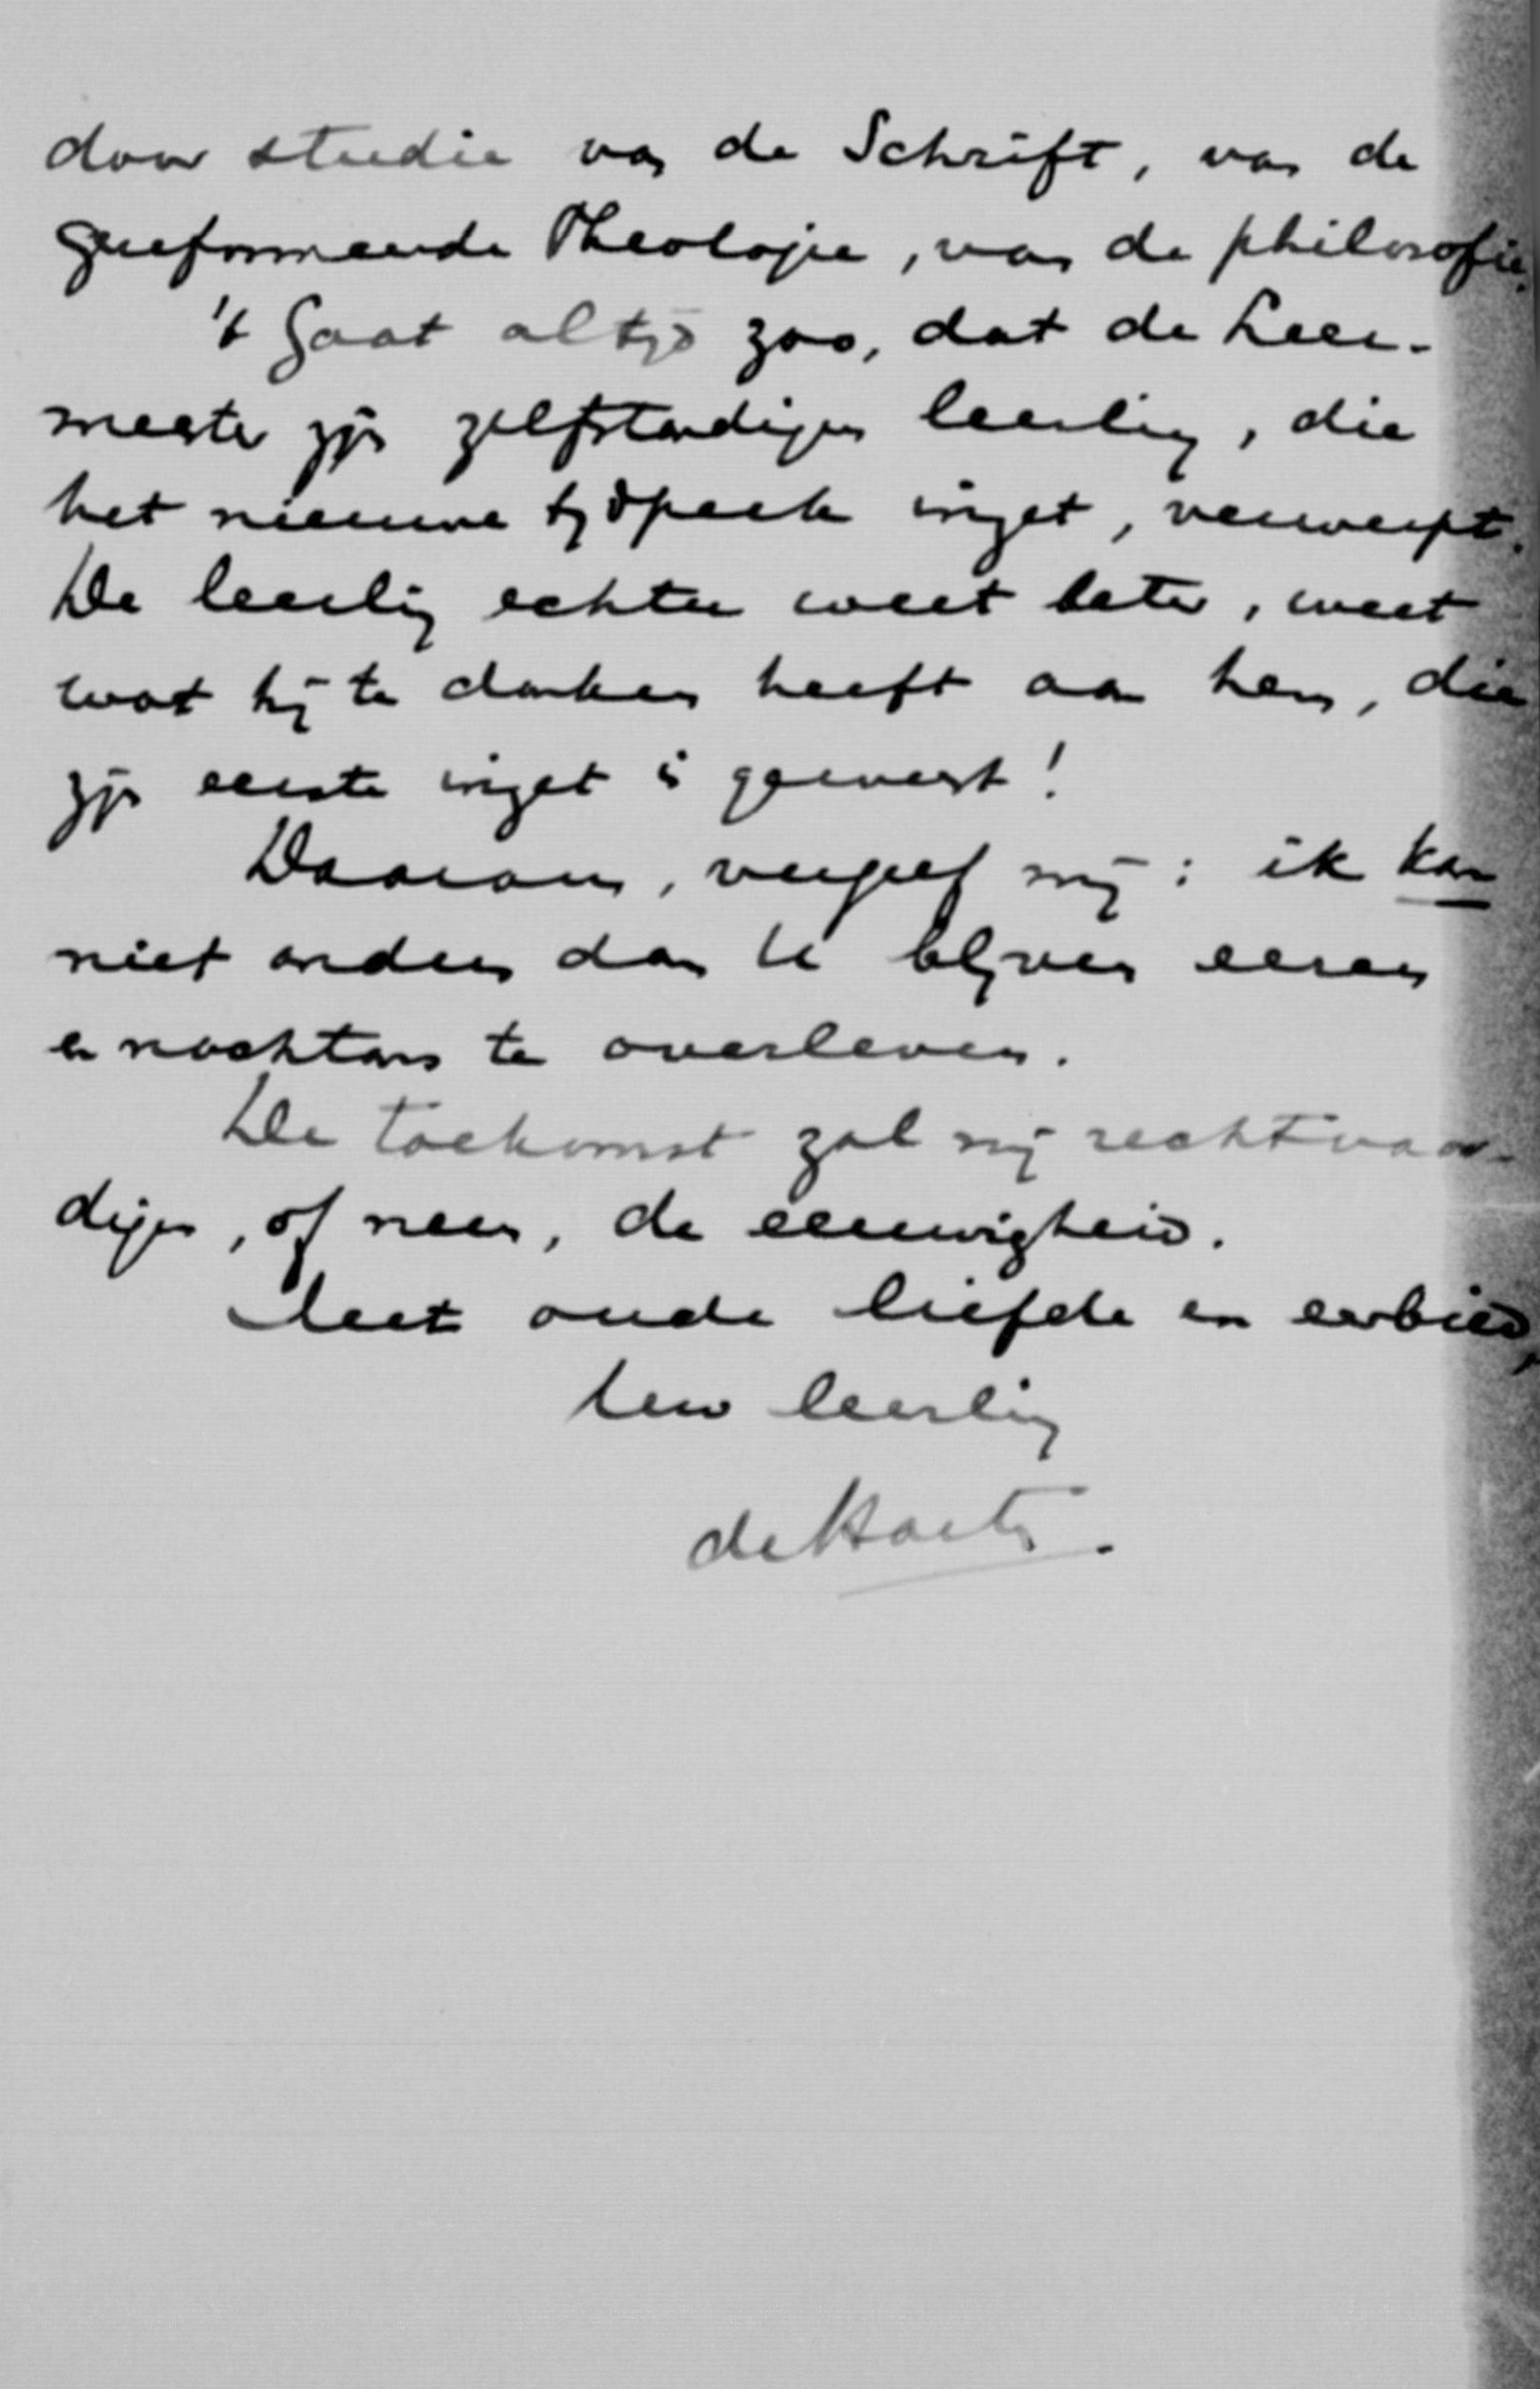 door studie van de Schrift, van de
gereformeerde Theologie, van de philosofie.
't Gaat altijd zoo, dat de Leer-
meester zijn zelfstandigen leerling, die
het nieuwe tijdperk inzet, verwerpt.
De leerling echter weet beter, weet
wat hij te danken heeft aan hem, die
zijn eerste inzet is geweest!
Daarom, vergeef mij: ik kan
niet anders dan U blijven eeren
en nochtans te overleven.
De toekomst zal mij rechtvaar-
digen, of neen, de eeuwigheid.
Met oude liefde en eerbied,
Uw leerling
de Hartog.